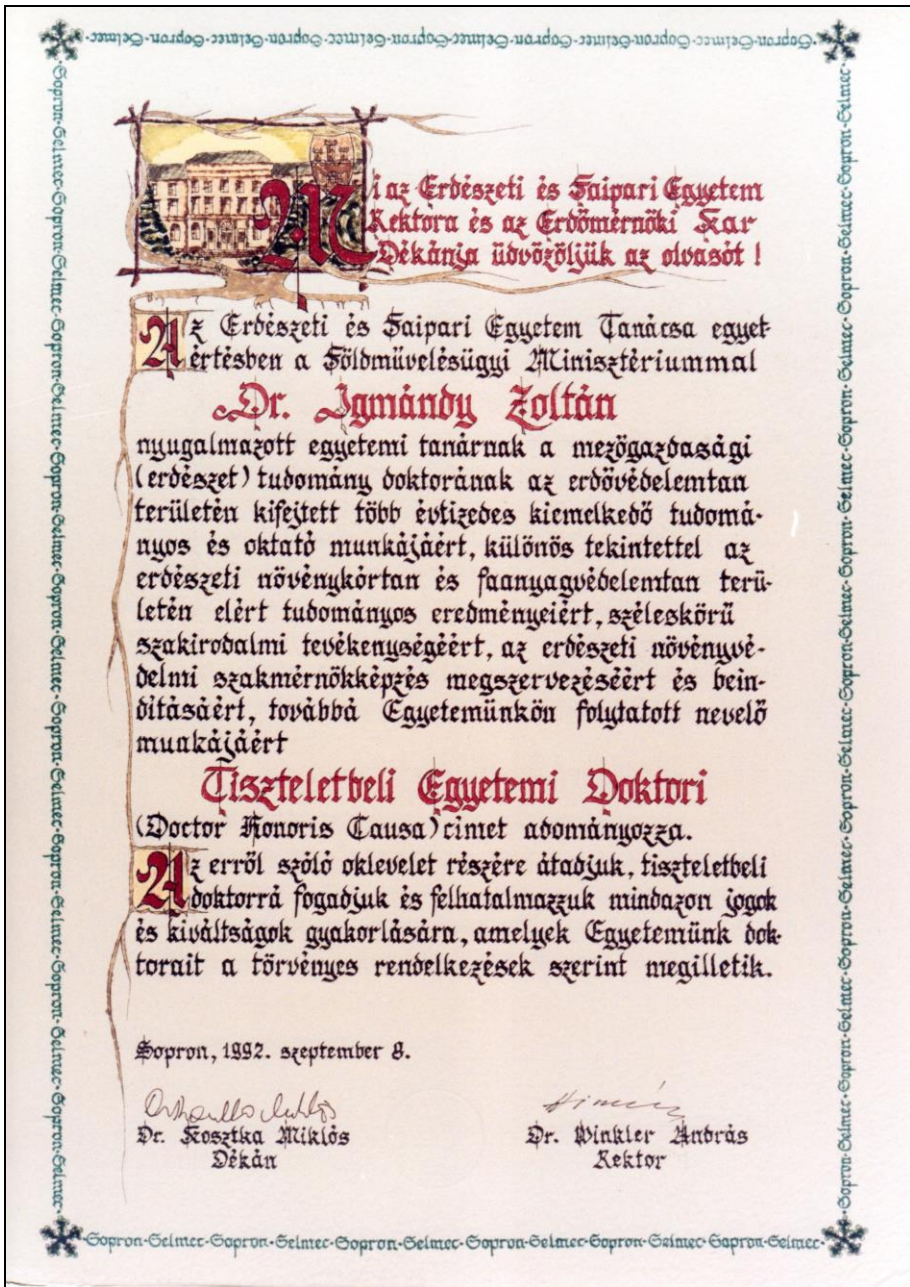 ·Sopron·Selmec·Sopron·Selmec·Sopron·Selmec·Sopron·Selmec·Sopron·Selmec·Sopron·Selmec·
Mi az Erdészeti és Faipari Egyetem
Rektora és az Erdőmérnöki Kar
Dékánja üdvözöljük az olvasót !
Az Erdészeti és Faipari Egyetem Tanácsa egyet-
értésben a Földmüvelésügyi Minisztériummal
Dr. Igmándy Zoltán
nyugalmazott egyetemi tanárnak a mezőgazdasági
(erdészet) tudomány doktorának az erdővédelemtan
területén kifejtett több évtizedes kiemelkedő tudomá-
nyos és oktató munkájáért, különös tekintettel az
erdészeti növénykórtan és faanyagvédelemtan terü-
letén elért tudományos eredményeiért, széleskörű
szakirodalmi tevékenységéért, az erdészeti növényvé-
delmi szakmérnökképzés megszervezéséért és bein-
ditásáért, továbbá Egyetemünkön folytatott nevelő
munkájáért
Tiszteletbeli Egyetemi Doktori
(Doctor Honoris Causa) cimet adományozza.
Az erről szóló oklevelet részére átadjuk, tiszteletbeli
doktorrá fogadjuk és felhatalmazzuk mindazon jogok
és kiváltságok gyakorlására, amelyek Egyetemünk dok-
torait a törvényes rendelkezések szerint megilletik.
Sopron, 1992. szeptember 8.
Dr. Kosztka Miklós
Dékán
Dr. Winkler András
Rektor
·Sopron·Selmec·Sopron·Selmec·Sopron·Selmec·Sopron·Selmec·Sopron·Selmec·Sopron·Selmec·